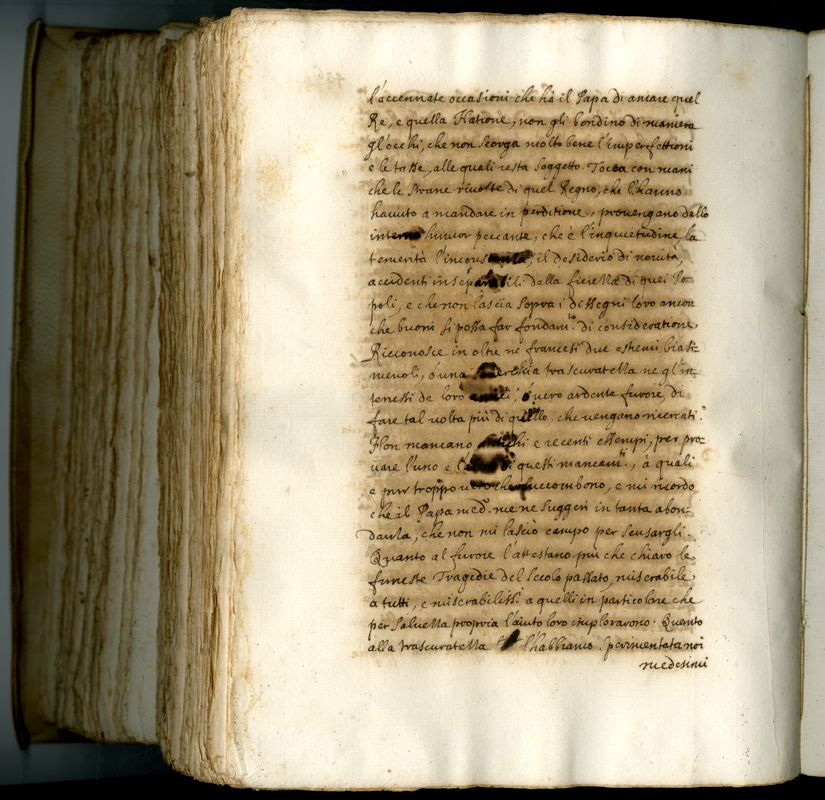 l'accennate occasioni che hà il Papa di amare quel
Re, e quella Natione, non gli bendino di maniera
gl'occhi, che non scorga molto bene l'imperfettioni
e le tasse, alle quali resta soggetto. Tocca con mani
che le strane rivolte di quel Regno, che l'hanno
havuto a mandare in perditione, provengano dallo
interno humor peccante, che è l'inquietudine la
temerità l'incostanza, il desiderio di novità,
accidenti inseparabili dalla fierezza di quei Po-
poli, e che non lascia sopra i dissegni loro ancor
che buoni si possa far fondam.to di consideratione.
Riconosce in oltre ne francesi due estremi biasi-
mevoli, ò una soverchia trascuratezza ne gl'in-
teressi de loro amici, ò vero ardente furore, di
fare tal volta più di quello, che vengano ricercati.
Non mancano antichi e recenti essempi, per pro-
vare l'uno e l'altro di questi mancam.ti, à quali
e pur troppo vero che succombono, e mi ricordo
che il Papa med.o me ne suggerì in tanta abon-
danza, che non mi lasciò campo per scusargli.
Quanto al furore l'attestano più che chiaro le
funeste Tragedie del secolo passato, miserabile
a tutti, e miserabilissi a quelli in particolare che
per salvezza propria l'aiuto loro implorarono. Quanto
alla trascuratezza l'habbiamo sperimentata noi
medesimi